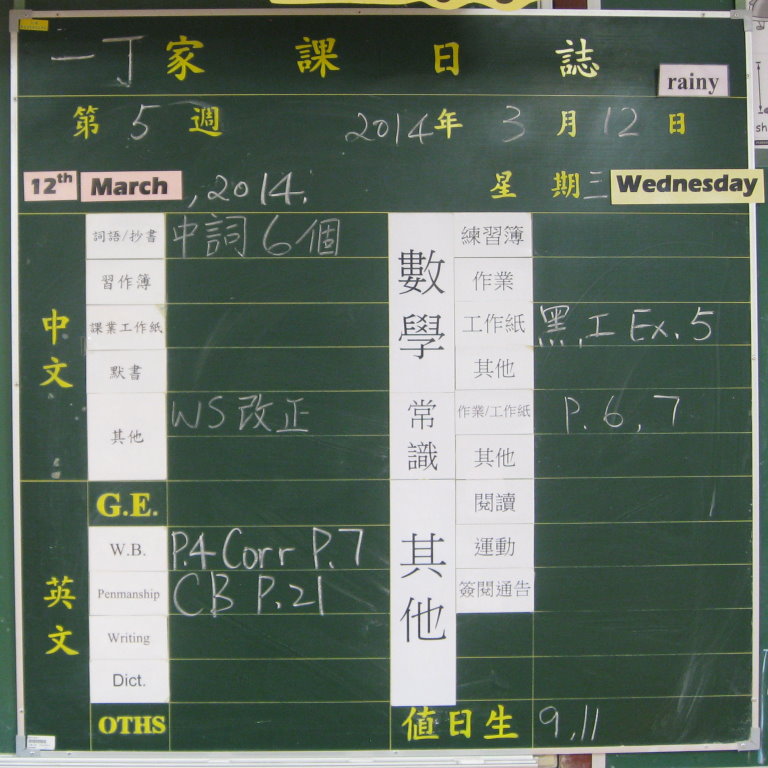 一丁家課日誌
rainy
第5週 2014年3月12日
12th March, 2014. 星期三 Wednesday
中文
詞語/抄書 中詞6個
習作簿
課業工作紙
默書
其他 WS改正
英文
G.E.
W.B. P.4 Corr P.7
Penmanship CB P.21
Writing
Dict.
OTHS
數學
練習簿
作業
工作紙 黑,工 Ex.5
其他
常識
作業/工作紙 P.6,7
其他
其他
閱讀
運動
簽閱通告
值日生 9,11